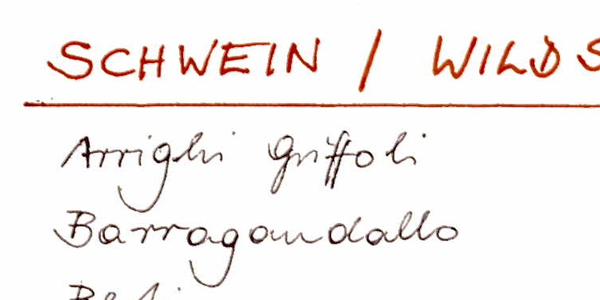 SCHWEIN / WILDS
Arrighi Griffoli
Barragandallo